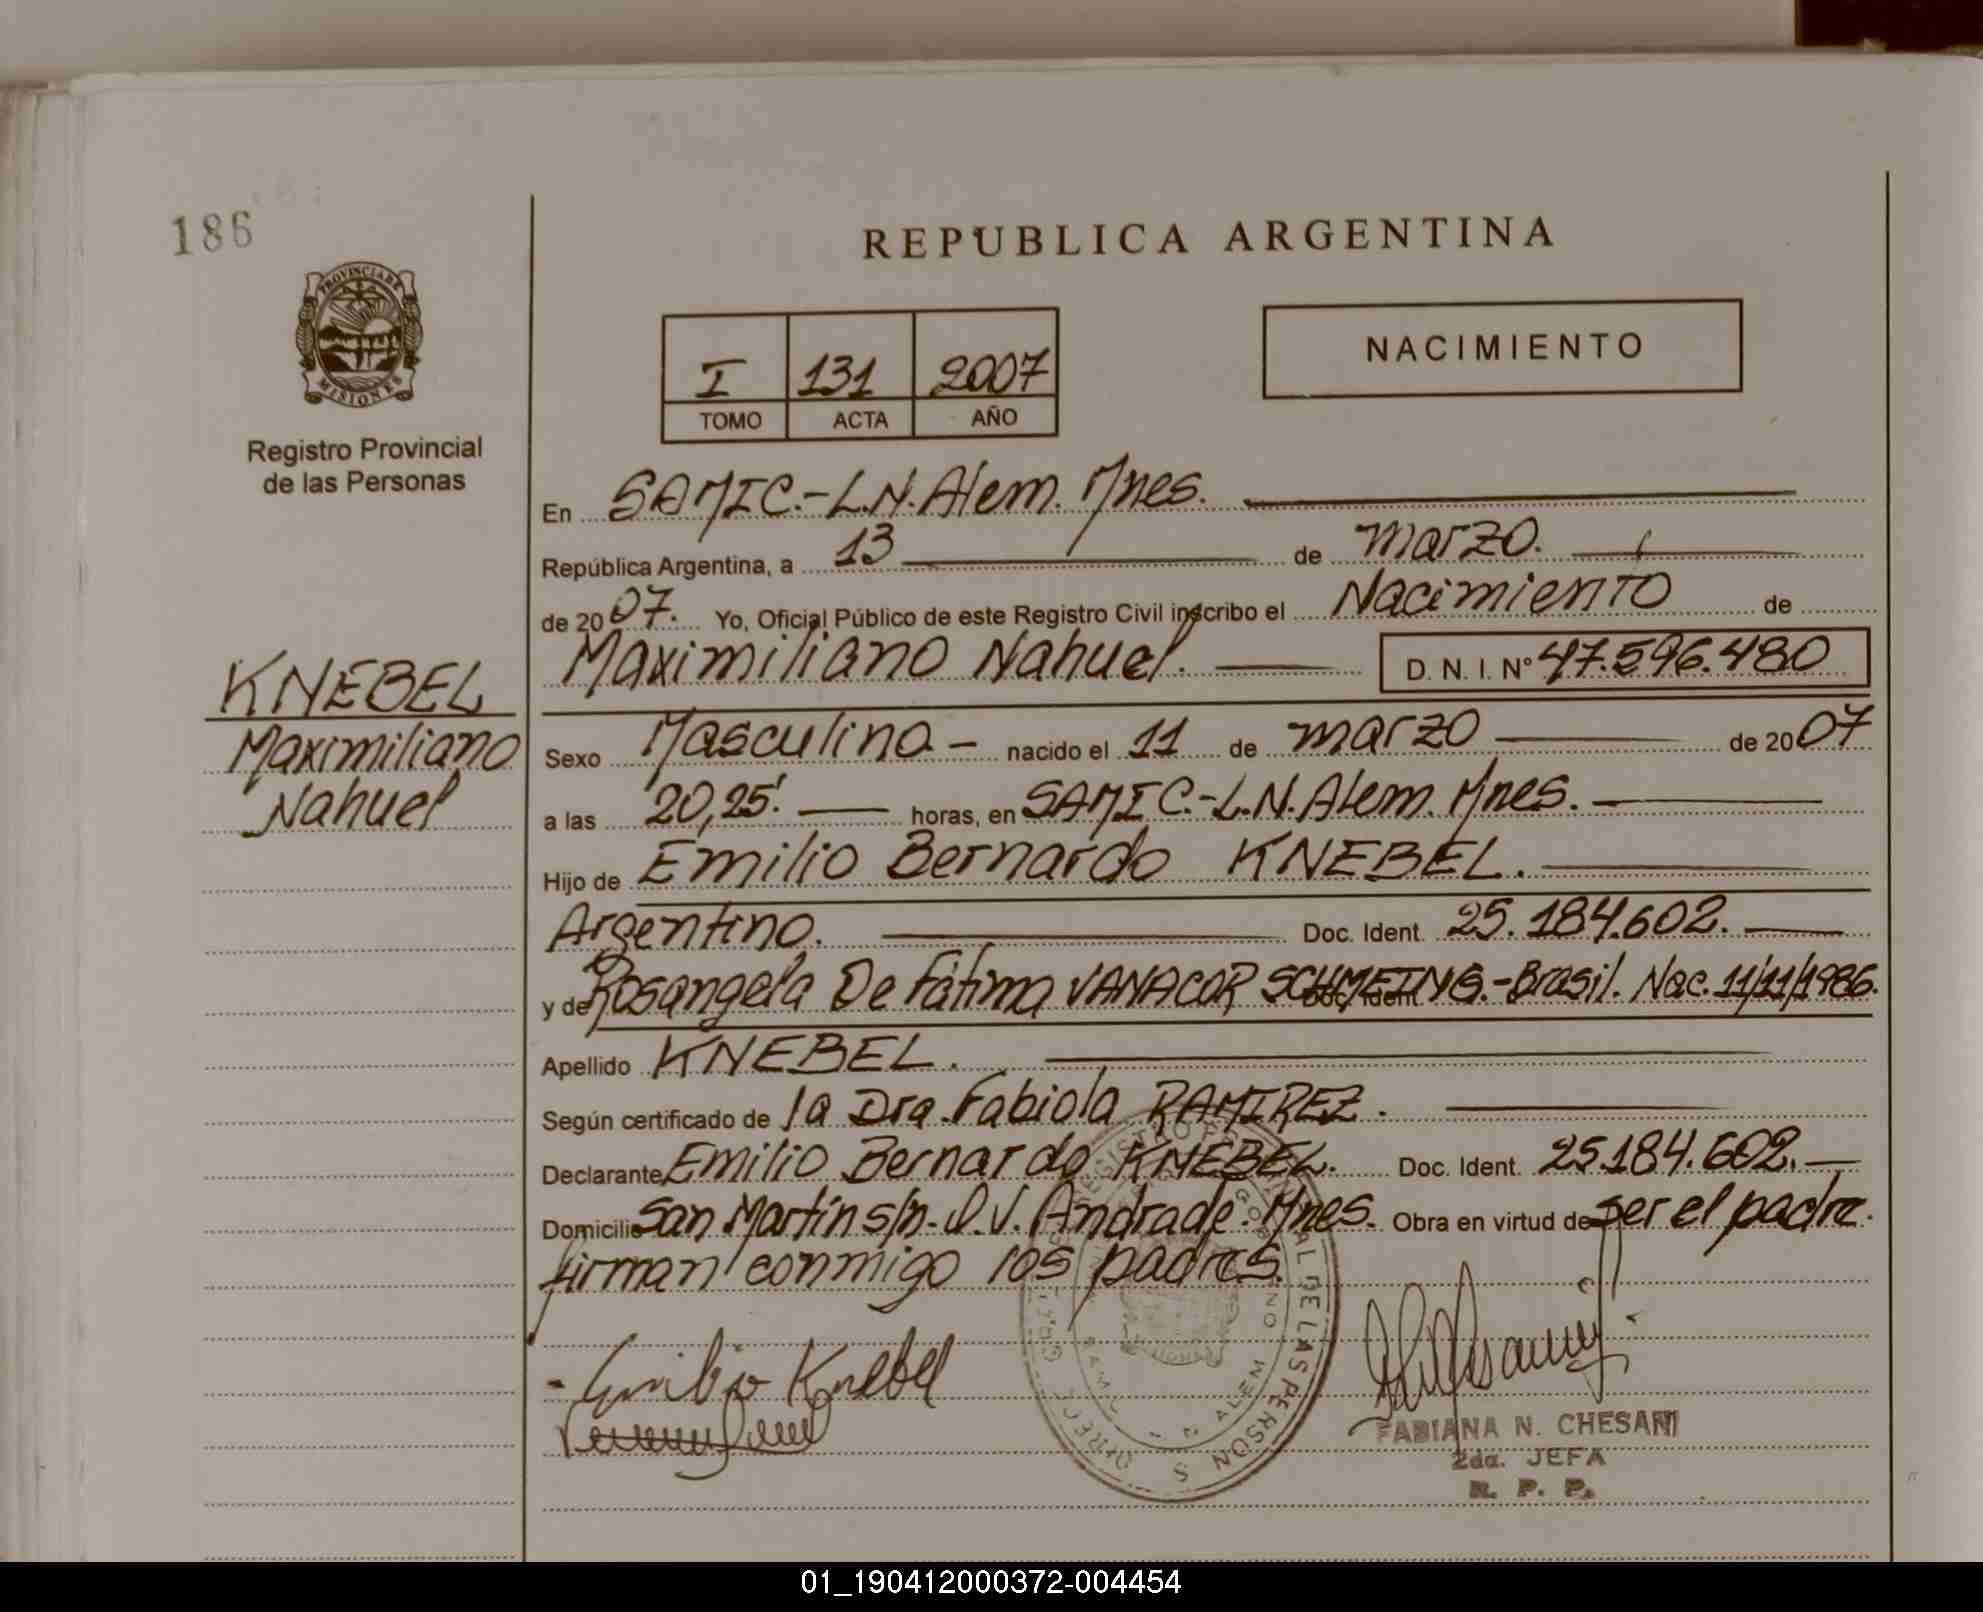 186
REPUBLICA ARGENTINA
PROVINCIA DE
MISIONES
Registro Provincial
de las Personas
I 131 2007
TOMO ACTA AÑO
NACIMIENTO
En SAMIC.-L.N.Alem. Mnes.
República Argentina, a 13 de marzo.
de 2007. Yo, Oficial Público de este Registro Civil inscribo el Nacimiento de
Maximiliano Nahuel. D. N. I. N° 47.596.480
KNEBEL
Maximiliano
Nahuel
Sexo Masculino - nacido el 11 de marzo de 2007
a las 20,25' horas, en SAMIC.-L.N.Alem. Mnes.
Hijo de Emilio Bernardo KNEBEL.
Argentino. Doc. Ident. 25.184.602.
y de Rosangela De Fátima VANACOR SCHMEING.-Brasil. Nac. 11/11/1986.
Doc. Ident.
Apellido KNEBEL.
Según certificado de la Dra. Fabiola RAMIREZ.
Declarante Emilio Bernardo KNEBEL. Doc. Ident. 25.184.602.
Domicilio San Martín s/n. D.V. Andrade. Mnes. Obra en virtud de ser el padre.
firman conmigo los padres.
REGISTRO PROVINCIAL DE LAS PERSONAS
L. N. ALEM
- Emilio Knebel
FABIANA N. CHESANI
2da. JEFA
R. P. P.
01_190412000372-004454